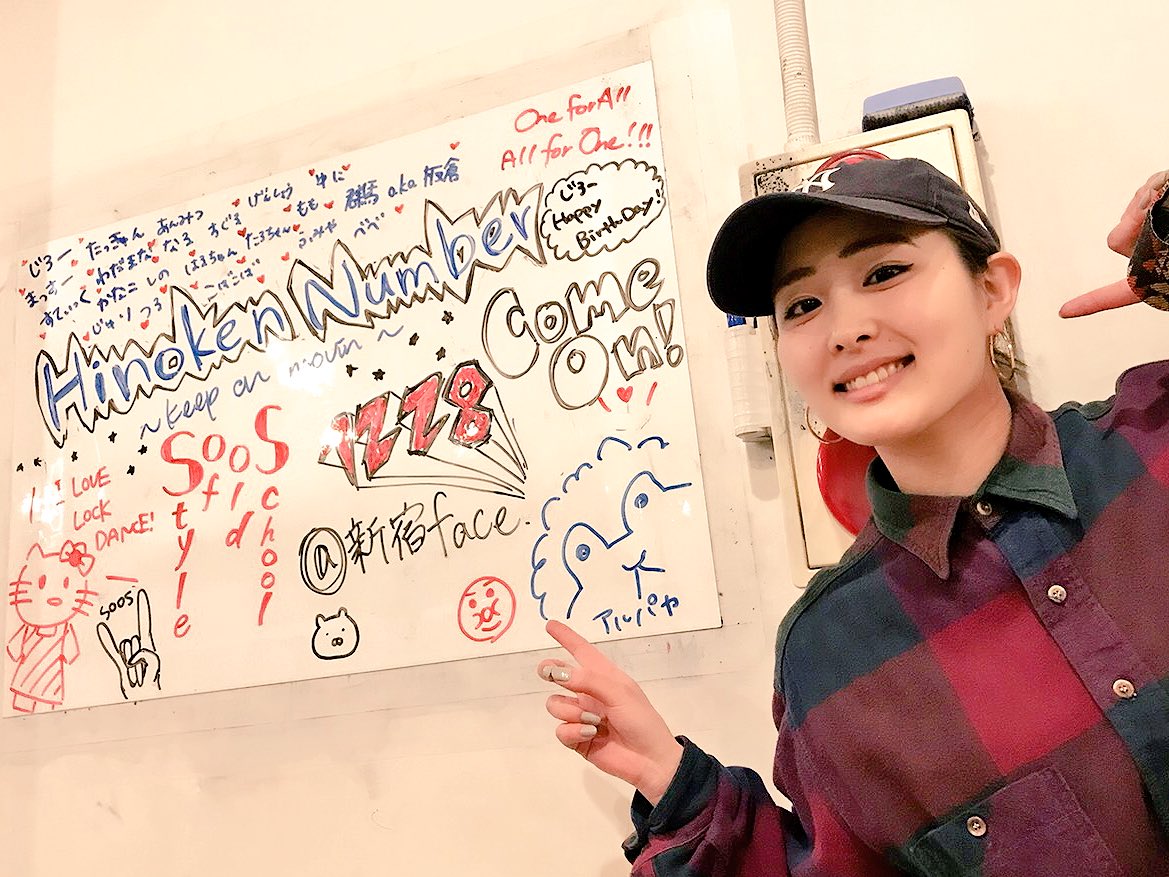 One for All
All for One!!!
じろー たっきゅん あんみつ げんしょう ゆに
まっさー わだまな なる すぐる もも 群馬 aka 板倉
すてぃっく かなこ しの はるちゃん たろちゃん ふみや べべ
じゅり つる こばこば
Hinoken Number
~keep on movin~
じろー
Happy
BirthDay!
Come
On!
1228
@新宿face.
SooS
Style
of
old
School
I LOVE
LOCK
DANCE!
SOOS
アルパカ
A